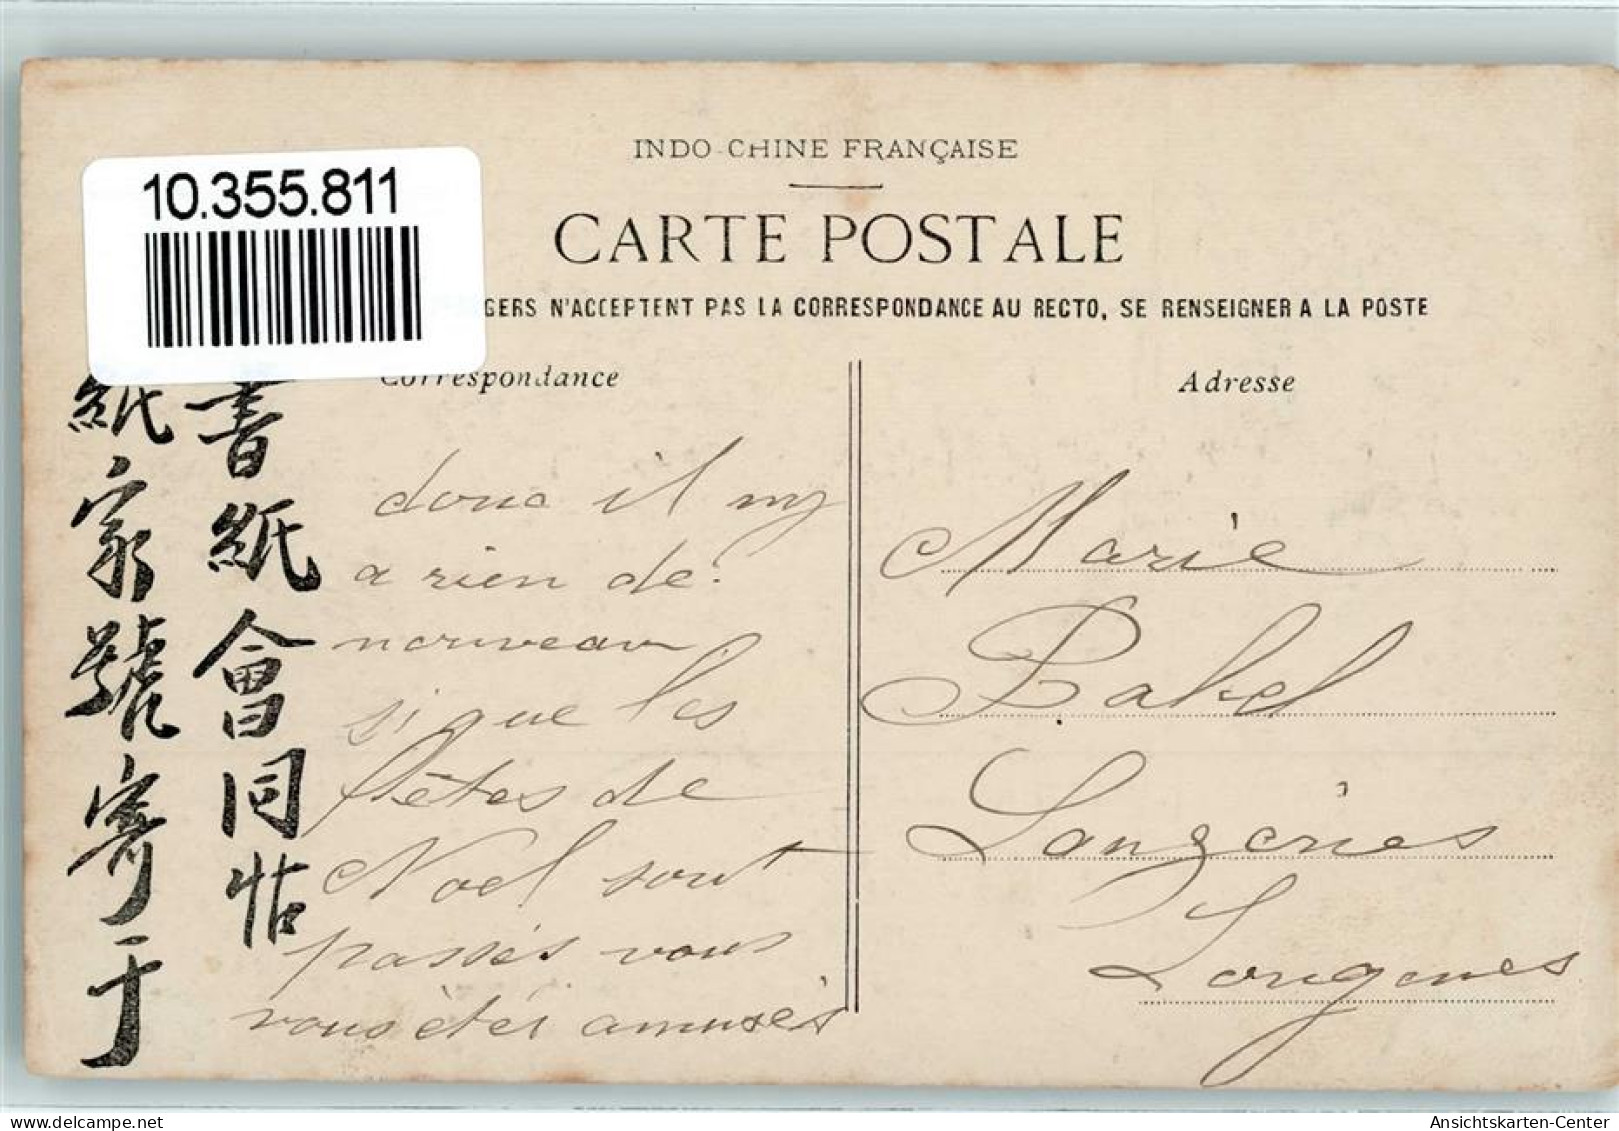 10.355.811
INDO-CHINE FRANÇAISE
CARTE POSTALE
GERS N'ACCEPTENT PAS LA CORRESPONDANCE AU RECTO, SE RENSEIGNER A LA POSTE
Correspondance
donc il ny
a rien de
nouveau
si que les
fêtes de
Noel sont
passés vous
vous étés amusés
Adresse
Marie
書紙會同帖
紙家號寄于
Ansichtskarten-Center